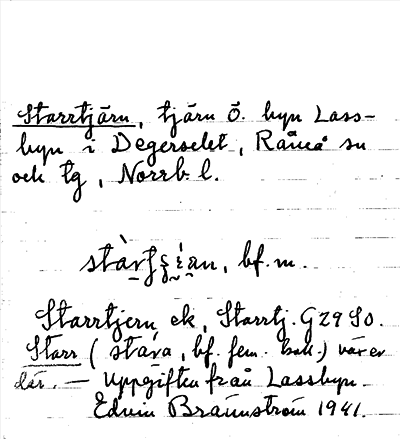 Starrtjärn, tjärn ö. byn Lass-
byn i Degerselet, Råneå sn
och tg, Norrb. l.
bf. m.
Starrtjern ek, Starrtj. G 29 SO.
Starr (stára, bf. fem. koll.) växer
där. — Uppgiften från Lassbyn.
Edvin Brännström 1941.